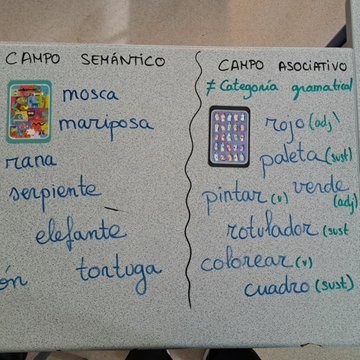 CAMPO SEMÁNTICO
mosca
mariposa
rana
serpiente
elefante
tortuga
CAMPO ASOCIATIVO
≠ Categoría gramatical
rojo (adj)
paleta (sust)
pintar (v) verde (adj)
rotulador (sust
colorear (v)
cuadro (sust)